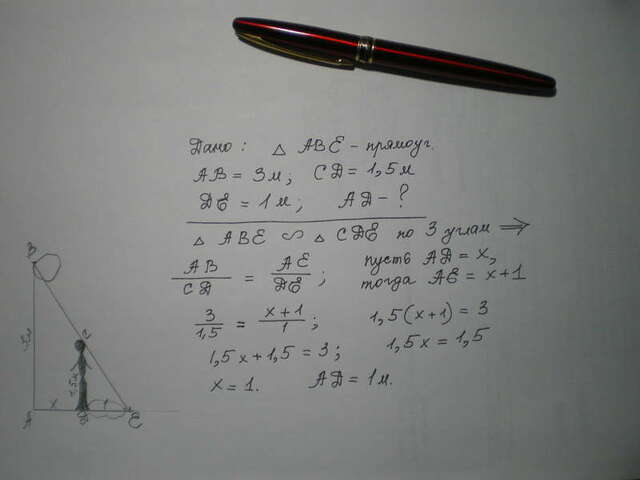 Дано: △ ABE - прямоуг.
AB = 3м; CD = 1,5м
DE = 1м; AD - ?
△ ABE ∽ △ CDE по 3 углам ⇒
AB/CD = AE/DE; пусть AD = x,
тогда AE = x+1
3/1,5 = x+1/1; 1,5(x+1) = 3
1,5x+1,5 = 3; 1,5x = 1,5
x = 1. AD = 1м.
B
C
1,5м
x
1
A
D
E